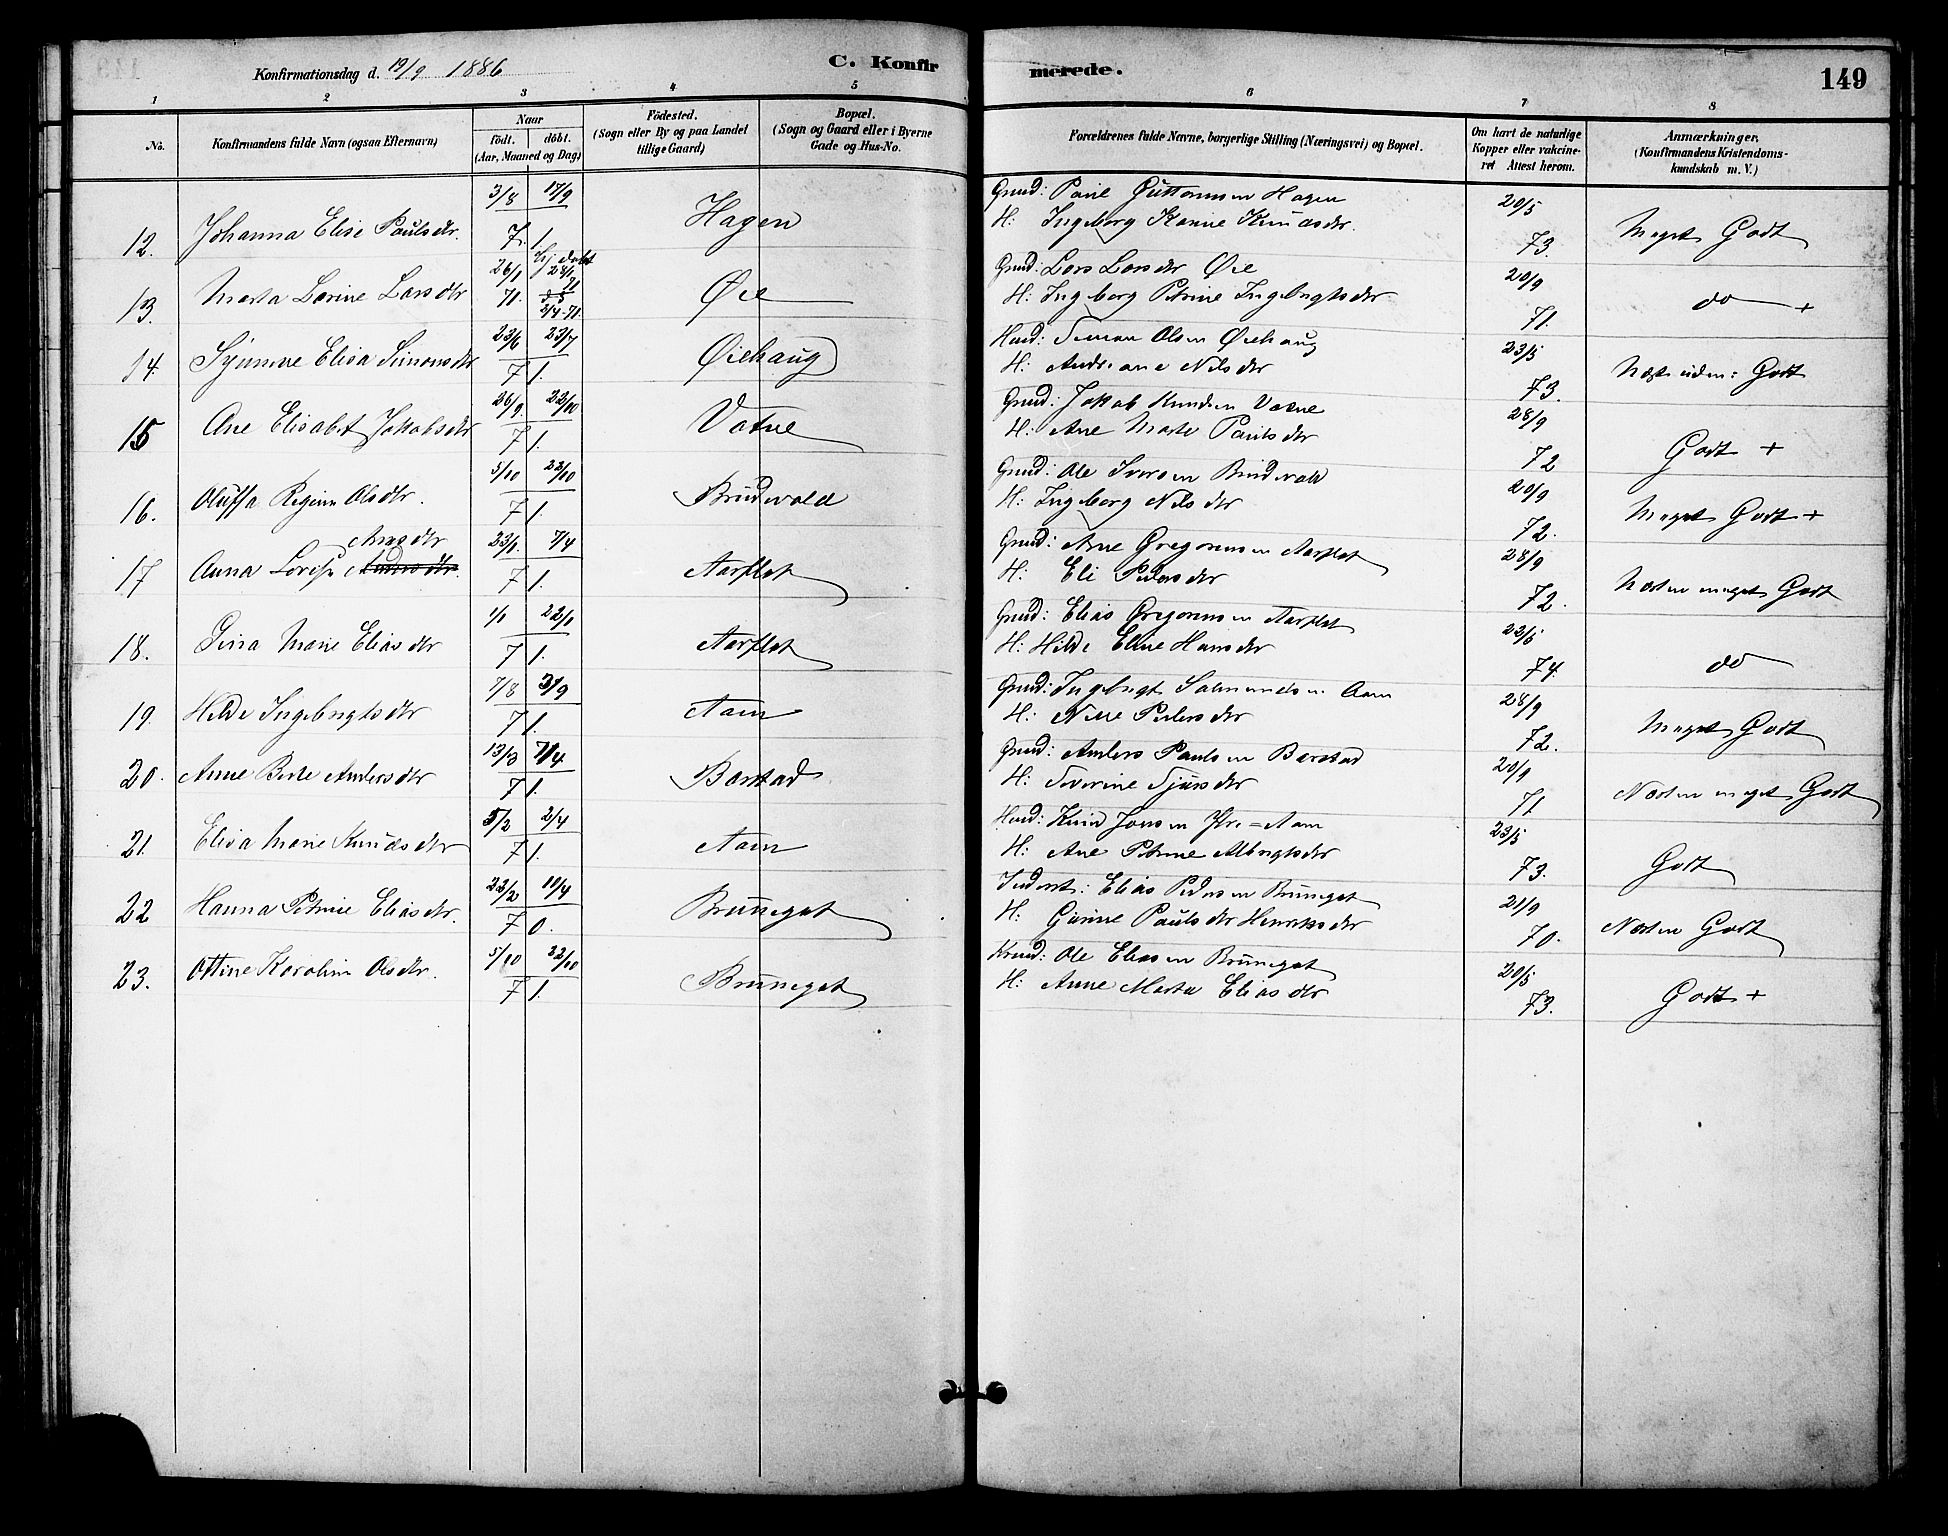 Konfirmationsdag d. 19/9 1886
C. Konfirmerede.
149
1 2 3 4 5 6 7 8
No. Konfirmandens fulde Navn (ogsaa Efternavn) Naar födt. döbt. (Aar, Maaned og Dag) Födested. (Sogn eller By og paa Landet tillige Gaard) Bopæl. (Sogn og Gaard eller i Byerne Gade og Hus-No. Forældrenes fulde Navne, borgerlige Stilling (Næringsvei) og Bopæl. Om havt de naturlige Kopper eller vakcineret Attest herom. Anmærkninger, (Konfirmandens Kristendomskundskab m. V.)
12. Johanna Elise Paulsdtr. 3/8 17/9 71. Hagen Grmd: Paul Guttormsen Hagen
H: Ingeborg Karine Knudsdtr. 20/5 73. Meget Godt
13. Marta Larine Larsdtr 26/1 71. Hj. døbt 28/1 2/4 71. Øie Grmd: Lars Larsdtr Øie
H: Ingeborg Petrine Ingebrigtsdtr. 20/9 71. do +
14. Synnove Elisa Simonsdtr 23/6 23/7 71. Øiehaug Husmd: Simon Olsen Øiehaug
H: Andriane Nilsdtr 23/5 73. Næst uden: Godt
15 Ane Elisabet Jakobsdtr 26/9. 22/10 71. Vatne Grmd: Jakob Knudsen Vatne
H: Ane Marte Paulsdtr 28/9 72 Godt +
16. Oluffa Regine Olsdtr. 5/10 22/10 71. Brudevold Grmd: Ole Iversen Brudevold
H: Ingeborg Nilsdtr 20/9 72. Meget Godt +
17 Anna Lovise Arnesdtr 23/1. 7/4 71. Aarflot Grmd: Arne Gregoriussen Aarflot
H: Eli Pedersdtr 28/9 72. Næsten meget Godt
18. Gina Marie Eliasdtr 1/1 22/1 71. Aarflot Grmd: Elias Gregoriussen Aarflot
H: Hilde Eline Hansdtr 23/5 74. do
19. Hilde Ingebrigtsdtr 7/8 3/9 71. Aam Grmd: Ingebrigt Salmundsen Aam
H: Nille Pedersdtr 28/9 72. Meget Godt
20. Anne Berte Andersdtr 13/3 7/4 71. Barstad Grmd: Anders Paulsen Barstad
H: Severine Sjursdtr 20/9 71. Næsten meget Godt
21. Elisa Marie Knudsdtr 5/2 2/4 71. Aam Husmd: Knud Jonsen Ytre=Aam
H: Ane Petrine Albrigtsdtr 23/5 73. Godt
22 Hanna Petrine Eliasdtr. 23/2 10/4 70. Bruneget Inderst: Elias Pedersen Bruneget
H: Gurine Paulsdtr Henriksdtr 21/9 70. Næsten Godt
23. Ottine Karoline Olsdtr. 5/10 22/10 71. Bruneget Grmd: Ole Eliassen Bruneget
H: Anne Marta Eliasdtr 20/5 73. Godt +